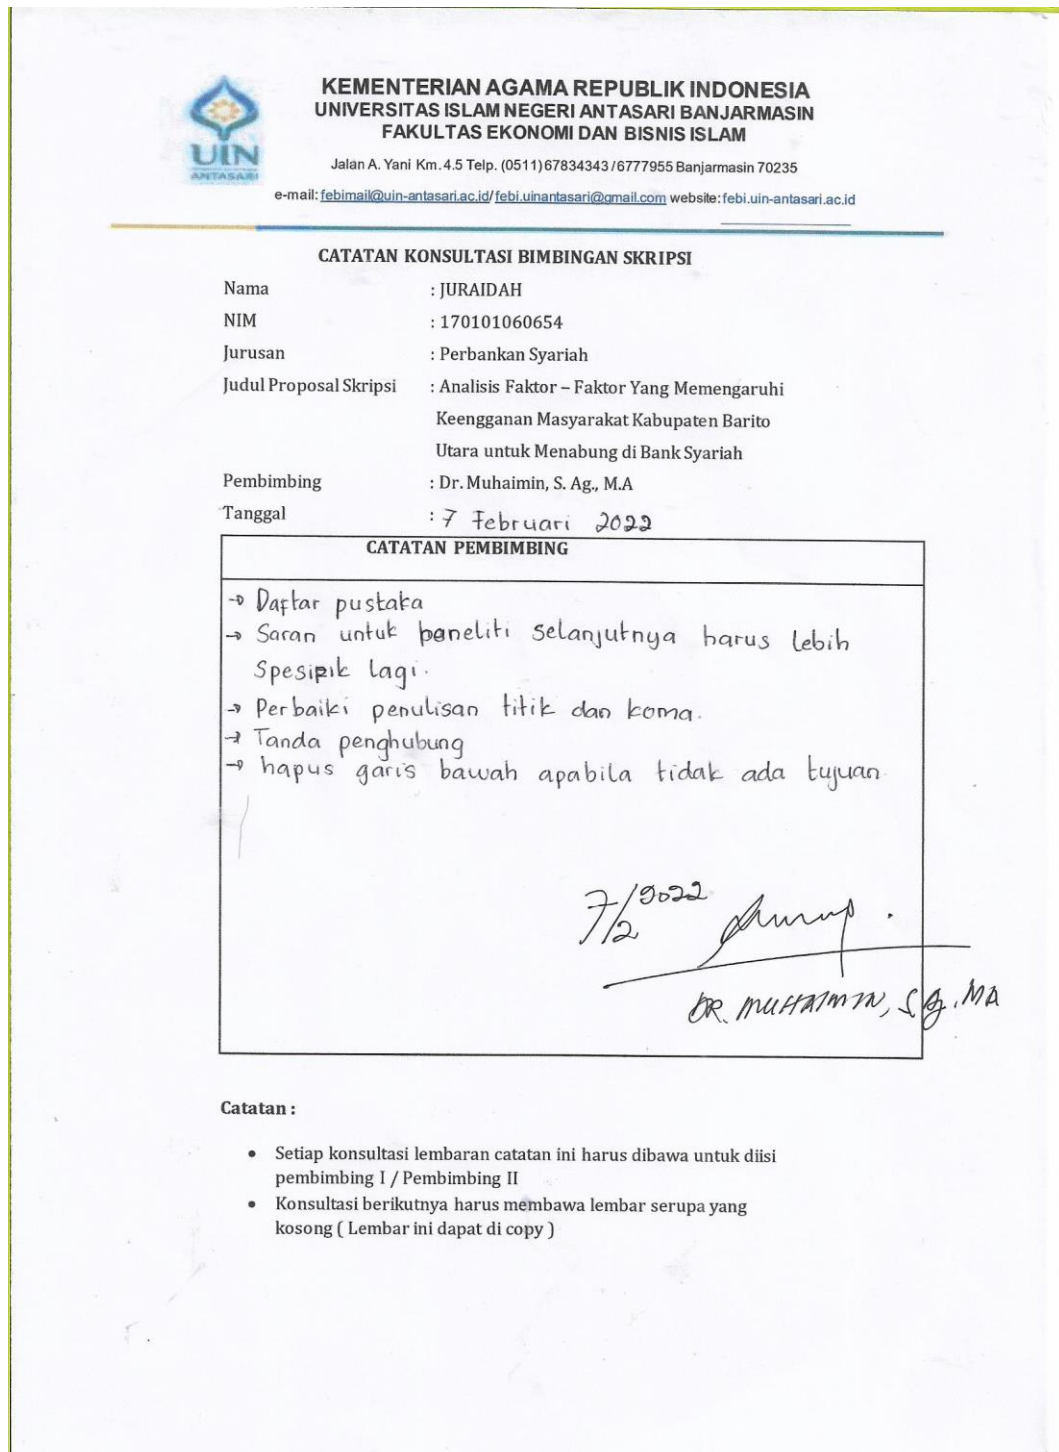 UIN
ANTASARI
KEMENTERIAN AGAMA REPUBLIK INDONESIA
UNIVERSITAS ISLAM NEGERI ANTASARI BANJARMASIN
FAKULTAS EKONOMI DAN BISNIS ISLAM
Jalan A. Yani Km. 4.5 Telp. (0511) 67834343 / 6777955 Banjarmasin 70235
e-mail: febimail@uin-antasari.ac.id/ febi.uinantasari@gmail.com website: febi.uin-antasari.ac.id
CATATAN KONSULTASI BIMBINGAN SKRIPSI
Nama : JURAIDAH
NIM : 170101060654
Jurusan : Perbankan Syariah
Judul Proposal Skripsi : Analisis Faktor – Faktor Yang Memengaruhi
Keengganan Masyarakat Kabupaten Barito
Utara untuk Menabung di Bank Syariah
Pembimbing : Dr. Muhaimin, S. Ag., M.A
Tanggal : 7 Februari 2022
CATATAN PEMBIMBING
→ Daftar pustaka
→ Saran untuk peneliti selanjutnya harus lebih
Spesipik lagi.
→ Perbaiki penulisan titik dan koma.
→ Tanda penghubung
→ hapus garis bawah apabila tidak ada tujuan
7/2 2022
DR. MUHAIMIN, S Ag. MA
Catatan :
• Setiap konsultasi lembaran catatan ini harus dibawa untuk diisi
pembimbing I / Pembimbing II
• Konsultasi berikutnya harus membawa lembar serupa yang
kosong ( Lembar ini dapat di copy )